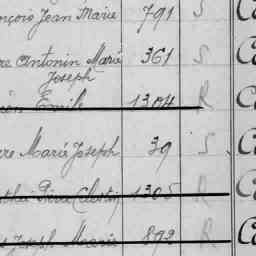 nçois Jean Marie 791 S
re Antonin Marie 361 S
Joseph
Emile 1304 R
re Marie Joseph 39 S
Pierre Celestin 1305 R
Joseph Marie 892 R